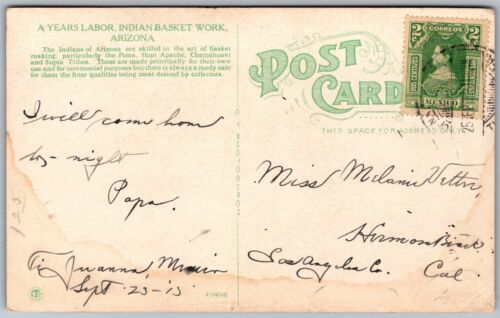 A YEARS LABOR, INDIAN BASKET WORK,
ARIZONA
The Indians of Arizona are skilled in the art of Basket
making, particularly the Pima, Hopi Apache, Chemehuevi
and Supia Tribes. These are made principally for their own
use and for ceremonial purposes but there is always a ready sale
for them the finer qualities being most desired by collectors.
I will come home
to-night
Papa.
Ti Juanna, Mexico
Sept 23-13
POST
CARD
THIS SPACE FOR ADDRESS ONLY
2 2
MEXICO
Miss Melanie Vetter
Hermosa Beach
Los Angeles Co. Cal